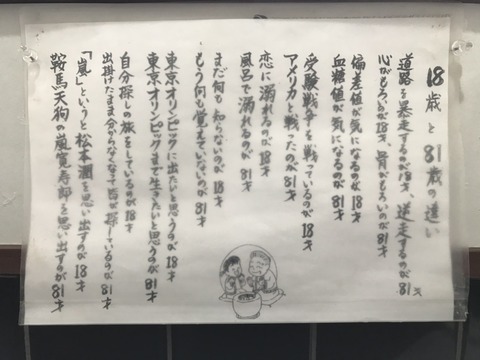 18歳と81歳の違い
道路を暴走するのが18才、逆走するのが81才
心がもろいのが18才、骨がもろいのが81才
偏差値が気になるのが18才
血糖値が気になるのが81才
受験戦争を戦っているのが18才
アメリカと戦ったのが81才
恋に溺れるのが18才
風呂で溺れるのが81才
まだ何も知らないのが18才
もう何も覚えていないのが81才
東京オリンピックに出たいと思うのが18才
東京オリンピックまで生きたいと思うのが81才
自分探しの旅をしているのが18才
出掛けたまま分からなくなって皆が探しているのが81才
「嵐」というと松本潤を思い出すのが18才
鞍馬天狗の嵐寛寿郎を思い出すのが81才